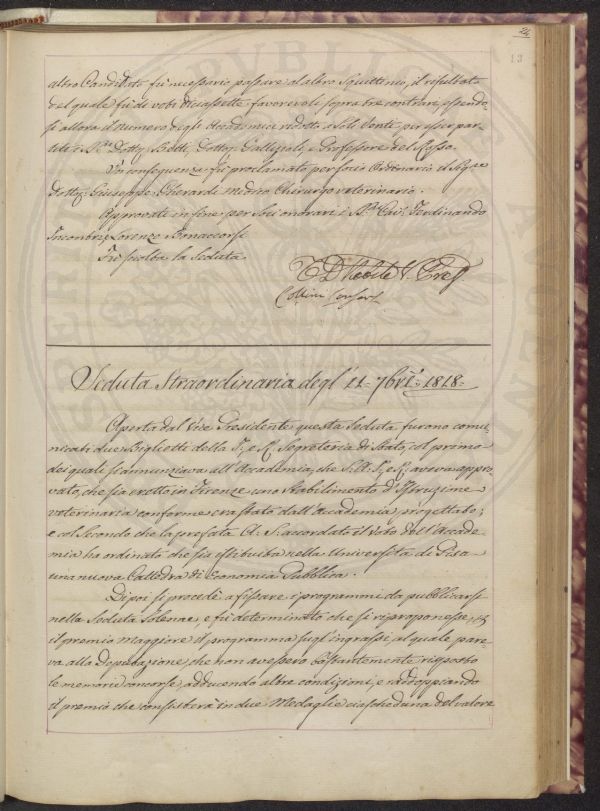 24
13
altro Candidato fù necessario passare al altro Squittinio, il risultato
del quale fù di voti diciassette favorevoli sopra tre contrari, essendo-
si allora il numero degl'Accademici ridotto a soli Venti per esser par-
titi i SS.ri Dott. Betti, Dott. Gallizioli, e Professore del Rosso.
In conseguenza fù proclamato per socio Ordinario il Sig.re
Dott. Giuseppe Gherardi Medico Chirurgo veterinario.
Approvati in fine per Soci onorari i SS.ri Cav. Ferdinando
Incontri, e Lorenzo Bonaccorsi
Fù sciolta la Seduta
V. Pres.
Collini
Seduta Straordinaria degl' 11. 7bre 1818.
Aperta dal Vice Presidente questa Seduta furono comu-
nicati due Biglietti della I. e R. Segreteria di Stato, col primo
dei quali si annunziava all'Accademia, che S. A. I. e R. aveva appro-
vato, che sia eretto in Firenze uno stabilimento d'Istruzione
veterinaria conforme era stato dall'Accademia progettato;
e col Secondo che la prefata A. S. accordato il Voto dell'Accade-
mia ha ordinato che sia istituita nella Università di Pisa
una nuova Cattedra di Economia Pubblica.
Di poi si procedè a fissare i programmi da pubblicarsi
nella Seduta Solenne, e fù determinato che si riproponesse
il premio maggiore il programma sugl'ingrassi al quale pare-
va alla Deputazione, che non avessero bastantemente risposto
le memorie concorse, adducendo altre condizioni, e raddoppiando
il premio che consisterà in due Medaglie ciascheduna del valore